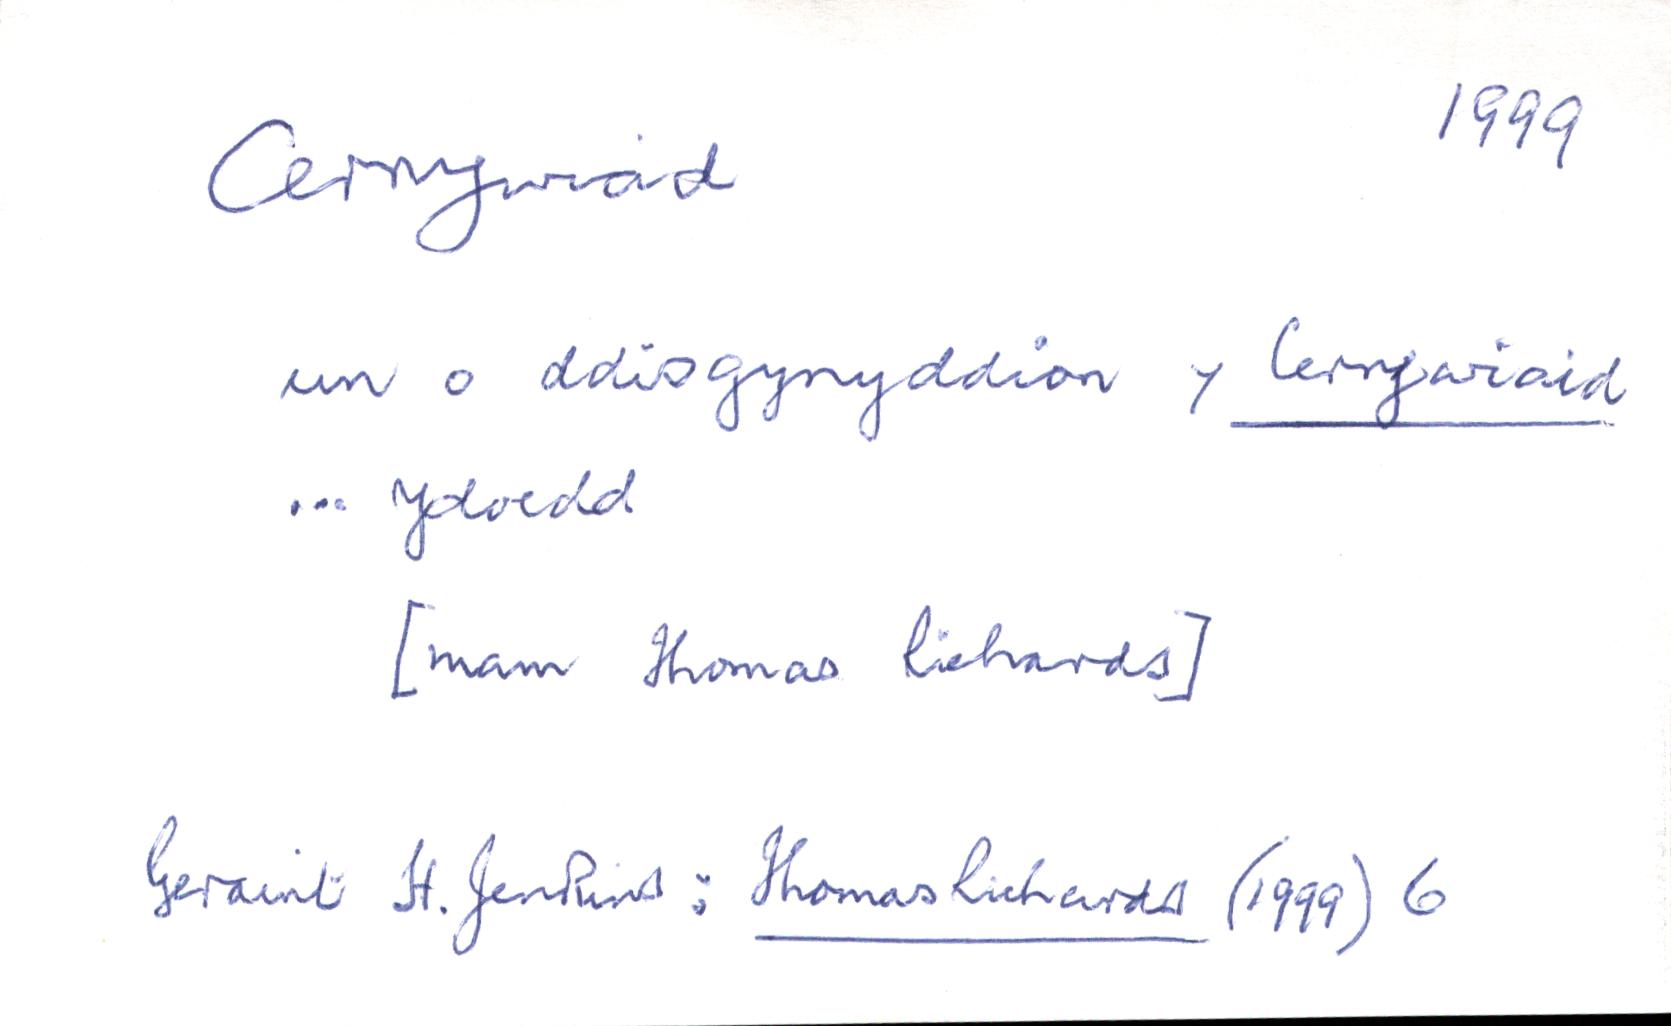 1999
Cernywiad
un o ddisgynyddion y Cernywiaid
... ydoedd
[mam Thomas Richards]
Geraint H. Jenkins : Thomas Richards (1999) 6